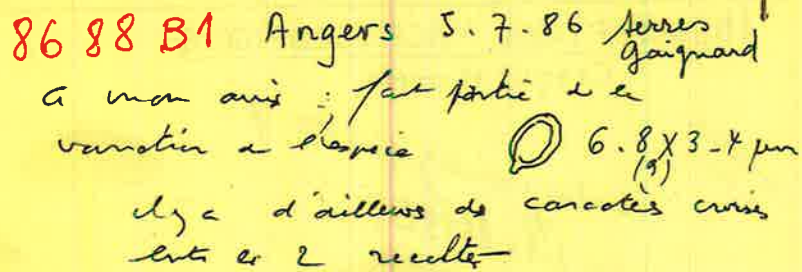 86 88 B1 Angers 5.7.86 terres
Gaignard
a mon avis : fait partie de la
variation de l'espèce 6.8 x 3-4 µm
(9)
il y a d'ailleurs des caractères croisés
entre les 2 recoltes